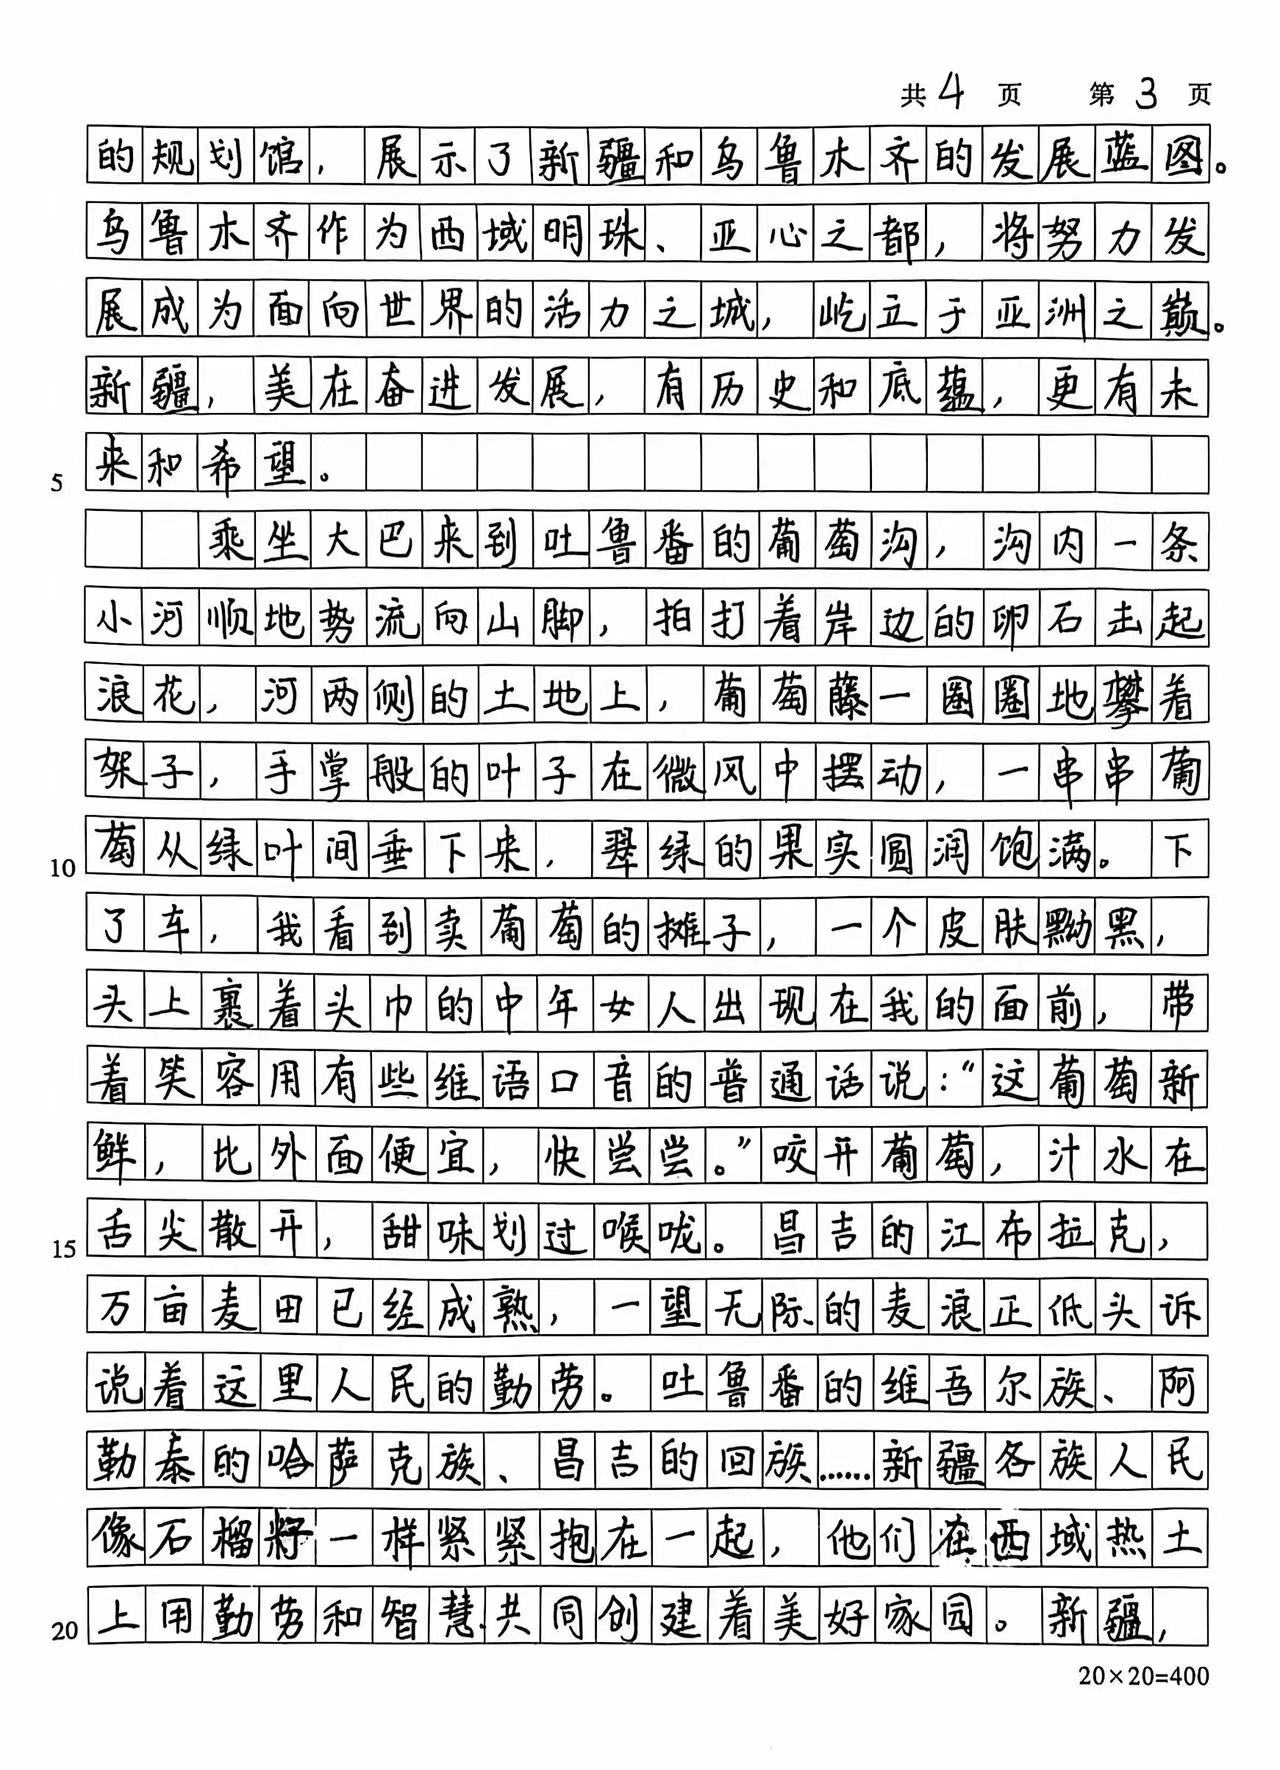 共4页 第3页
的规划馆，展示了新疆和乌鲁木齐的发展蓝图。
乌鲁木齐作为西域明珠、亚心之都，将努力发
展成为面向世界的活力之城，屹立于亚洲之巅。
新疆，美在奋进发展，有历史和底蕴，更有未
5 来和希望。
乘坐大巴来到吐鲁番的葡萄沟，沟内一条
小河顺地势流向山脚，拍打着岸边的卵石击起
浪花，河两侧的土地上，葡萄藤一圈圈地攀着
架子，手掌般的叶子在微风中摆动，一串串葡
10 萄从绿叶间垂下来，翠绿的果实圆润饱满。下
了车，我看到卖葡萄的摊子，一个皮肤黝黑，
头上裹着头巾的中年女人出现在我的面前，带
着笑容用有些维语口音的普通话说：“这葡萄新
鲜，比外面便宜，快尝尝。”咬开葡萄，汁水在
15 舌尖散开，甜味划过喉咙。昌吉的江布拉克，
万亩麦田已经成熟，一望无际的麦浪正低头诉
说着这里人民的勤劳。吐鲁番的维吾尔族、阿
勒泰的哈萨克族、昌吉的回族……新疆各族人民
像石榴籽一样紧紧抱在一起，他们在西域热土
20 上用勤劳和智慧共同创建着美好家园。新疆，
20×20=400